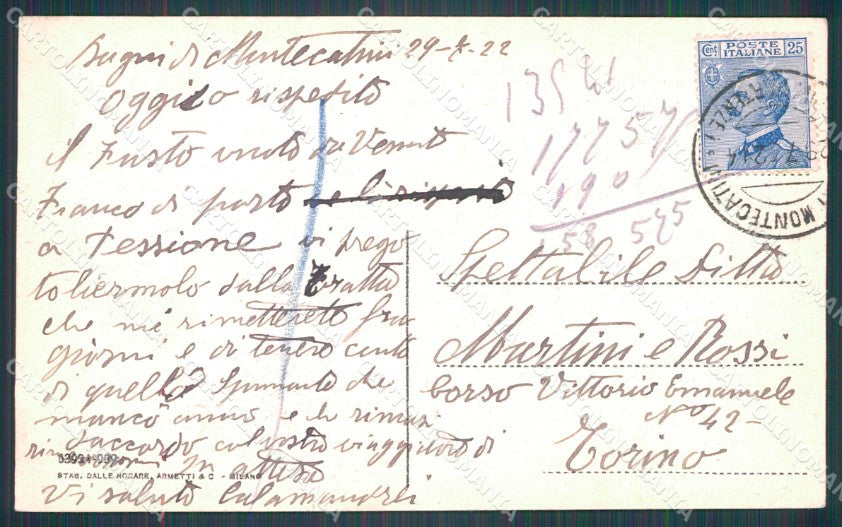 Bagni di Montecatini 29-X-22
Oggi Lo rispedito
il Fusto vuoto di Vermut
Franco di porto
a Tessione vi prego
toliermolo dalla tratta
che mi rimettereto fra
giorni e di tenere conto
di quello spumante che
manco anno e che rimasi
daccordo col vostro viaggiatore di
In attesa
Vi saluto Calamandrei
63924-099
STAB. DALLE NOGARE, ARMETTI & C - MILANO
135
17757
190
158 575
Cent POSTE ITALIANE 25
MONTECATINI
FIRENZE
Spettabile Ditta
Martini e Rossi
Corso Vittorio Emanuele
No 42-
Torino
CARTOLINOMANIA